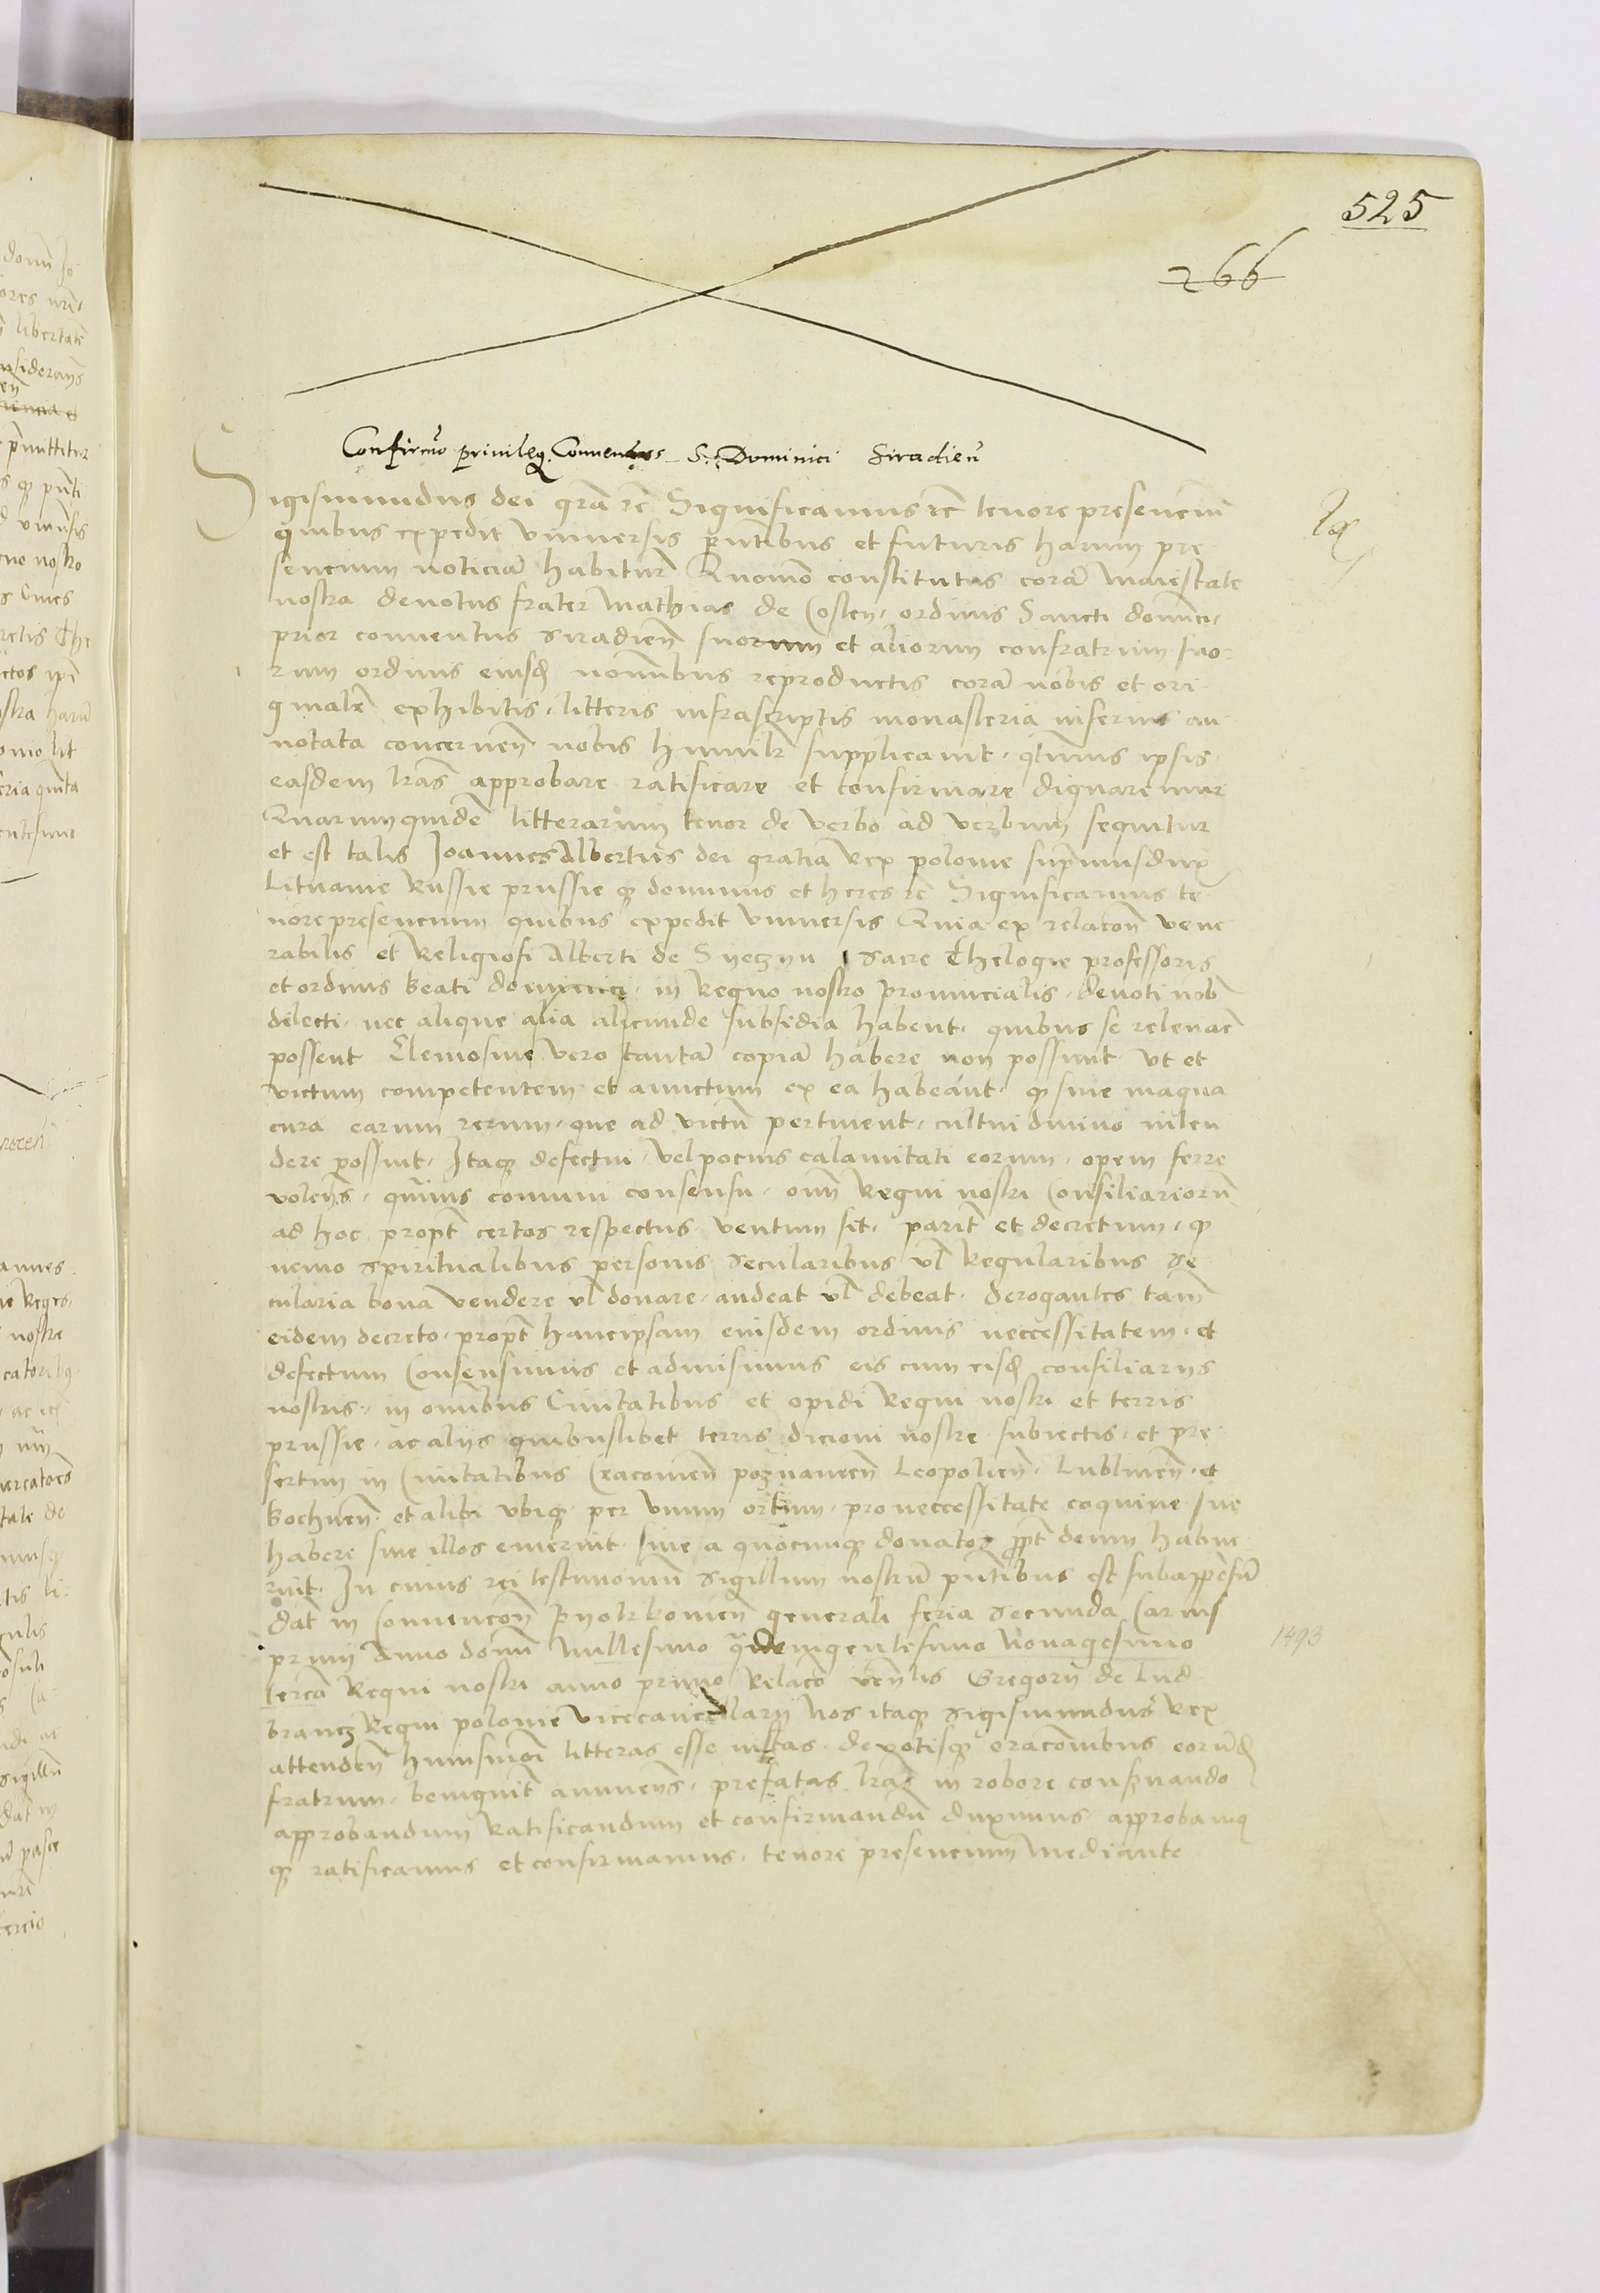 525
266
Confirmo privileg. Conventus S. Dominici Siradien̄
Sigismundus dei gr̄a rc̄ Significamus rc̄ tenore presencium
quibus expedit Vniuersis pn̄tibus et futuris harum pre
sencium noticiā habitur̄ Quomō constitutus corā Maiestate
nostra deuotus frater Mathias de Costen, ordinis Sancti dominici,
prior conuentus Siradien̄ suorum et aliorum confratrum suo-
rum ordinis eiusd nominibus reproductis corā nobis et ori
ginalr̄ exhibitis, litteris infrascriptis monasteria inferius an
notata concernen̄ nobis humilr̄ supplicauit, qtinus ipsis
easdem lr̄as approbare ratificare et confirmare dignaremur
Quarumquidē litterarum tenor de verbo ad verbum sequitur
et est talis Joannes Albertus dei gratia Rex polonie supremusdux
Lituanie Russie prussie qz dominus et heres rc̄ Significamus te
nore presencium quibus expedit Vniuersis Quia ex relacon̄ vene
rabilis et Religiosi Alberti de Syeczyn Sacre Theologie professoris
et ordinis beati dominici in Regno nostro prouincialis, deuoti nob̄
dilecti, nec alique alia alicunde subsidia habent, quibus se releuar̄
possent Elemosine vero tantā copiā habere non possunt vt et
victum competentem et amictum ex ea habeant, qz sine magna
cura earum rerum, que ad victū pertinent, cultui diuino inten
dere possint, Itaqz defectui, vel pocius calamitati eorum, opem ferre
volens̄, quamuis comuni consensu, om̄ Regni nostri Consiliariorū
ad hoc propt̄ certos respectus ventum sit, parit̄ et decretum, qz
nemo spiritualibus personis Secularibus vl̄ Regularibus Se
cularia bona vendere vl̄ donare, audeat vl̄ debeat, Derogantes tam̄
eidem decreto, propt̄ hancipsam eiusdem ordinis neccessitatem, et
defectum Consensimus et admisimus eis cum eisd consiliariis
nostris, in omnibus Ciuitatibus et opidi Regni nostri et terris
prussie, ac aliis quibuslibet terris dicioni nostre subiectis, et pre
sertim in Ciuitatibus Cracouien̄ poznanien̄ Leopolien̄, Lublinen̄, et
bochnen̄, et alibi vbiqz per vnum ortum, pro neccessitate coquine sue
habere siue illos emerint, siue a quocunqz donatos propt̄ deum habue
rint, In cuius rei testimoniū Sigillum nostrū pn̄tibus est subappēsū
dat̄ in Conuencon̄ pyotrkouien̄ generali feria Secunda Carnis
priuii Anno domī Millesimo quadringentesimo Nonagesimo
tercio Regni nostri anno primo Relaco ven̄lis Gregorii de Lud
brancz Regni polonie Vicecancellarii Nos itaqz Sigismundus Rex
attenden̄ huiusmōi litteras esse iustas, deuotisqz oraconibus eorund
fratrum, benignit̄ annuens̄, prefatas lr̄as in robore conseruando
approbandum Ratificandum et confirmandū duximus, approbamus
qz ratificamus et confirmamus, tenore presencium Mediante
1493